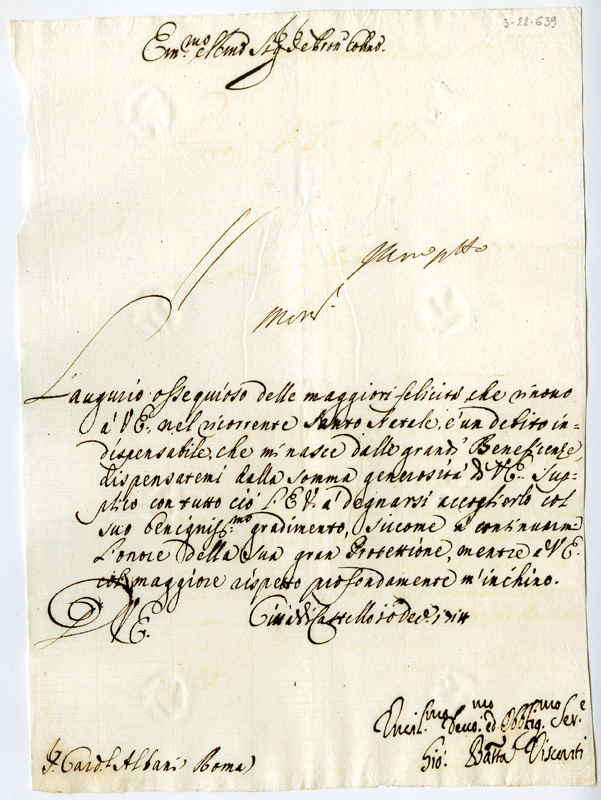 3-22-639
Em.mo e Rmo Sig.
L'augurio ossequioso delle maggiori felicità, che rinovo
à V.E. nel ricorrente Santo Natale, è un debito in=
dispensabile, che mi nasce dalle grandi Beneficenze
dispensatemi dalla somma generosità di V.E. Sup=
plico con tutto ciò l'E.V. à degnarsi accoglierlo col
suo benigniss.mo gradimento, siccome a continuarmi
l'onore della sua gran Protettione, mentre à V.E.
col maggiore rispetto profondamente m'inchino.
D V.E. Città di Castello 10 Dec. 1714
Umil.mo Devo.mo ed Obblig.mo Ser.e
Gio: Batta Visconti
S. Card.l Albani Roma